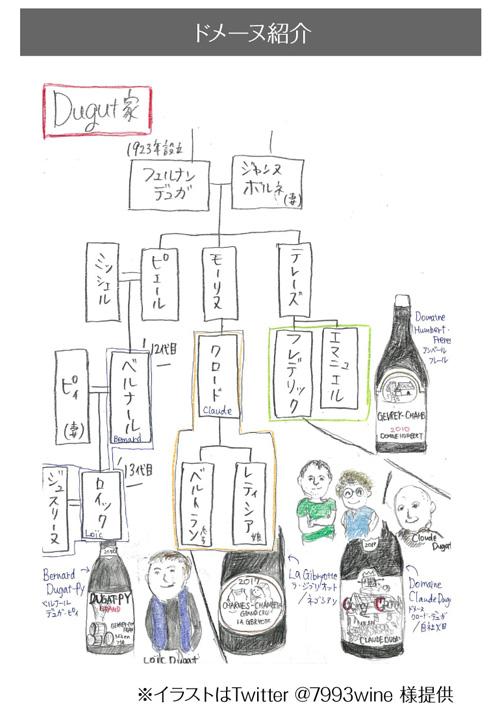 ドメーヌ紹介
Dugut家
1923年設立
フェルナン
デュガ
ジャンヌ
ボルネ
(妻)
ミッシェル
ピエール
モーリヌ
テレーズ
12代目
ピィ
(妻)
ベルナール
Bernard
クロード
Claude
フレデリック
エマニュエル
Domaine
Humbert・
Frère
アンベール
フレール
GEVREY-CHAMB
2010
DOMAINE HUMBERT
13代目
ジュスリーヌ
ロイック
Loïc
ベルトラン
レティシア
娘
Claude
Dugat
Bernard
Dugat-Py
ベルナール
デュガ・ピィ
DUGAT-PY
Loïc Dugat
2017
CHARMES-CHAMBERTIN
GRAND CRU
LA GIBRYOTTE
La Gibryotte
ラ・ジブリオット
/ネゴシアン
CLAUDE DUGAT
Domaine
Claude Dugat
ドメーヌ
クロード・デュガ
/自社畑
※イラストはTwitter @7993wine 様提供